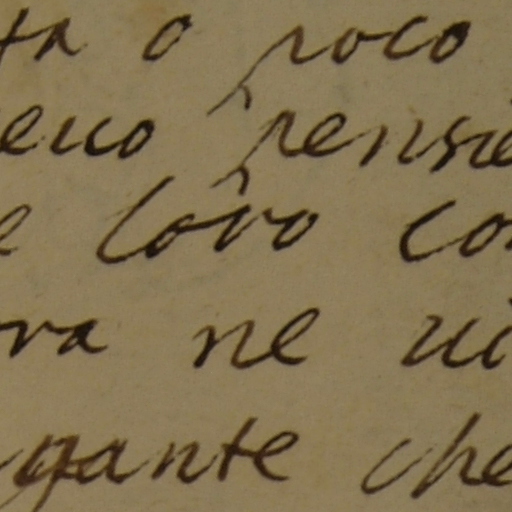 ta o poco
euo pensie
e loro co
ra ne ui
gante che